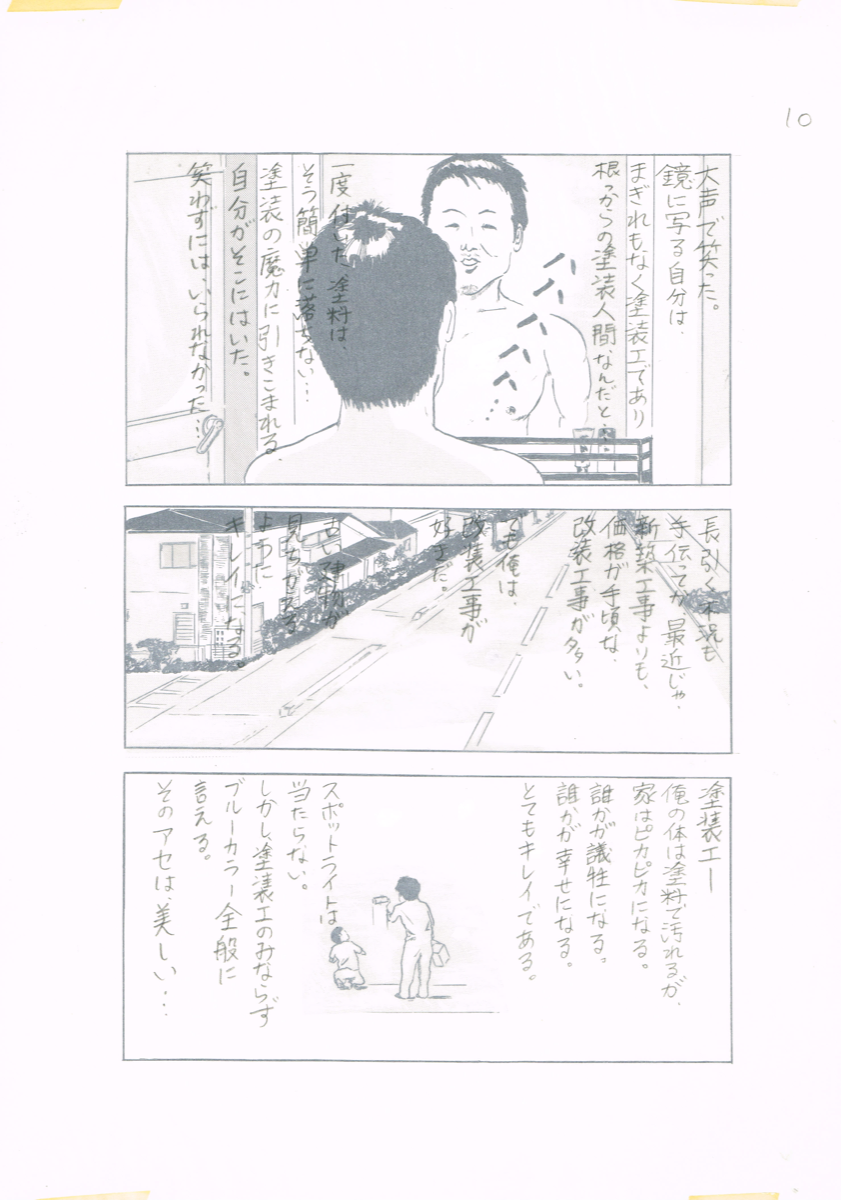 10
大声で笑った。
鏡に写る自分は、
まぎれもなく塗装工であり
根っからの塗装人間なんだと…
ハハハハハ…
一度付いた、塗料は、
そう簡単に落ちない…
塗装の魔力に引きこまれる、
自分がそこにはいた。
笑わずには、いられなかった…
長引く不況も
手伝ってか最近じゃ、
新築工事よりも、
価格が手頃な、
改装工事が多い。
でも俺は、
改装工事が
好きだ。
古い建物が
見ちがえる
ように
キレイになる。
塗装工ー
俺の体は塗料で汚れるが、
家はピカピカになる。
誰かが議牲になる。
誰かが幸せになる。
とてもキレイである。
スポットライトは
当たらない。
しかし、塗装工のみならず
ブルーカラー全般に
言える。
そのアセは、美しい…